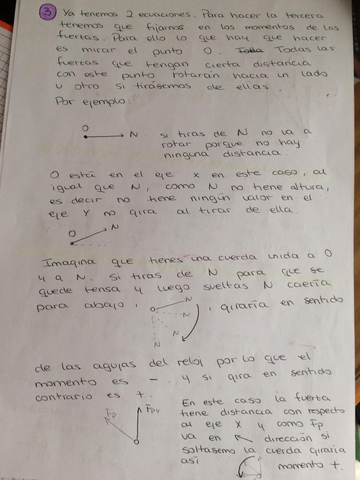 3 Ya tenemos 2 ecuaciones. Para hacer la tercera
tenemos que fijarnos en los momentos de las
fuerzas. Para ello lo que hay que hacer
es mirar el punto O. Todas las
fuerzas que tengan cierta distancia
con este punto rotarán hacia un lado
u otro si tirásemos de ellas.
Por ejemplo:
O N si tiras de N no va a
rotar porque no hay
ninguna distancia.
O está en el eje x en este caso, al
igual que N, como N no tiene altura,
es decir no tiene ningún valor en el
eje Y no gira al tirar de ella.
O N
Imagina que tienes una cuerda unida a O
y a N. si tiras de N para que se
quede tensa y luego sueltas N caería
para abajo, O N N N , giraría en sentido
de las agujas del reloj por lo que el
momento es - y si gira en sentido
contrario es +.
Fp Fpy
En este caso la fuerza
tiene distancia con respecto
al eje x y como Fp
va en ↖ dirección si
soltásemos la cuerda giraría
así momento +.